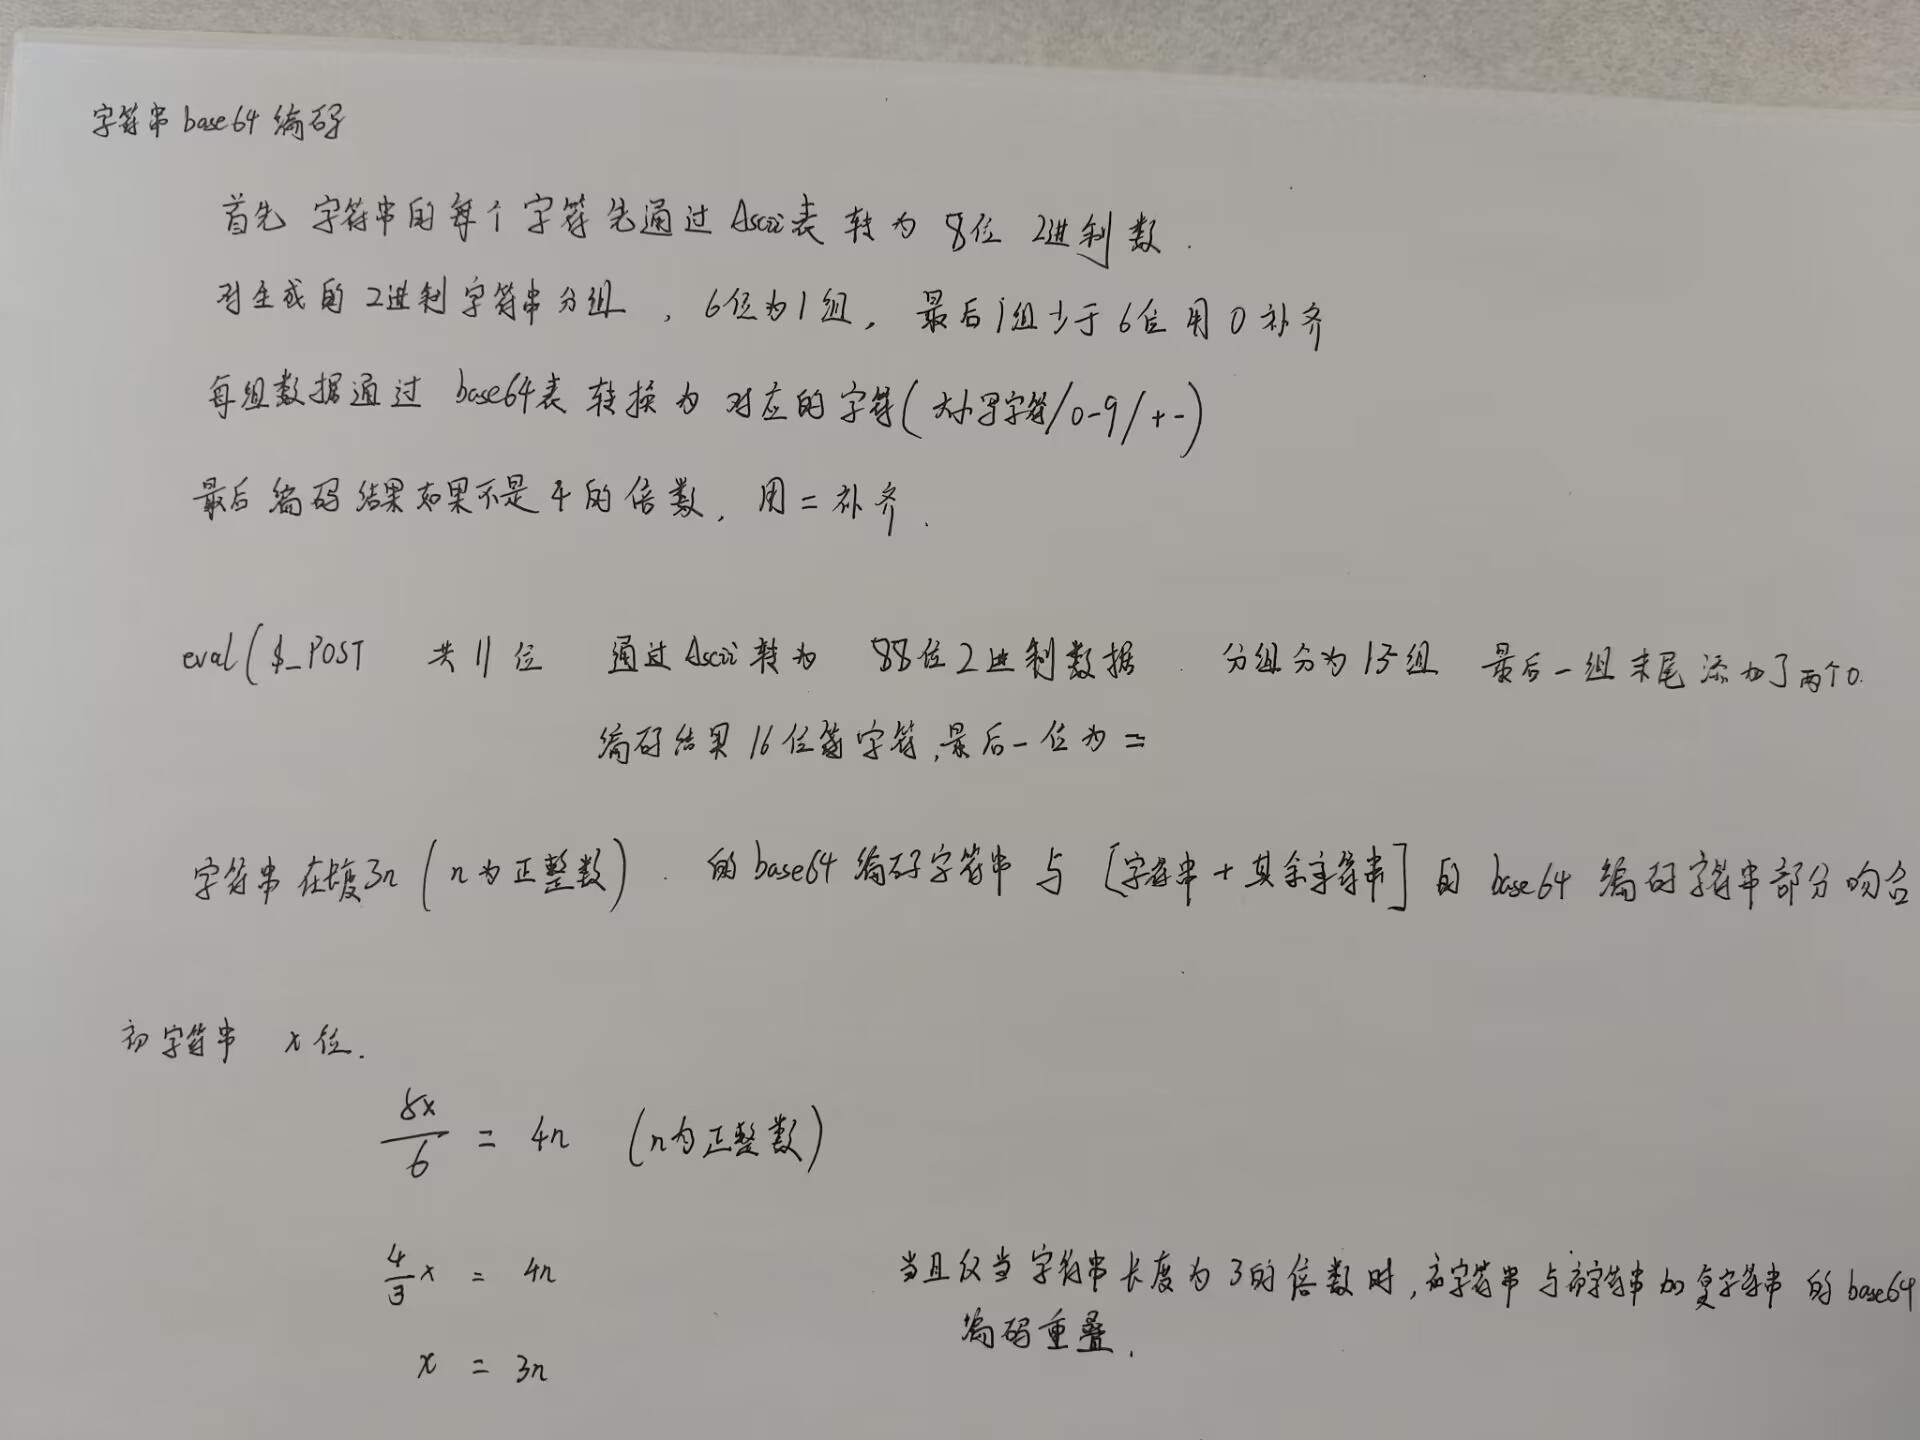 字符串base64编码
首先 字符串的每个字符先通过Ascii表 转为 8位 2进制数.
对生成的2进制字符串分组, 6位为1组, 最后1组少于6位用0补齐
每组数据通过 base64表 转换为 对应的字符(大小写字符/0-9/+-)
最后编码结果如果不是4的倍数, 用=补齐.
eval($_POST 共11位 通过Ascii转为 88位2进制数据. 分组分为15组 最后一组末尾添加了两个0.
编码结果16位 字符,最后一位为=
字符串在长度3n(n为正整数). 的base64编码字符串与[字符串+其余字符串]的base64编码字符串部分吻合
初字符串 x位.
8x/6 = 4n (n为正整数)
4/3 x = 4n
当且仅当字符串长度为3的倍数时,初字符串与初字符串加 字符串的base64
编码重叠.
x = 3n